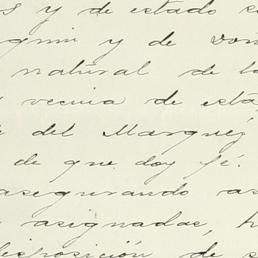 s y de estado
quin y de
natural de
vecina de esta
del Marqués
de que doy fé.
asegurando as
asignadas, h
disposición de s